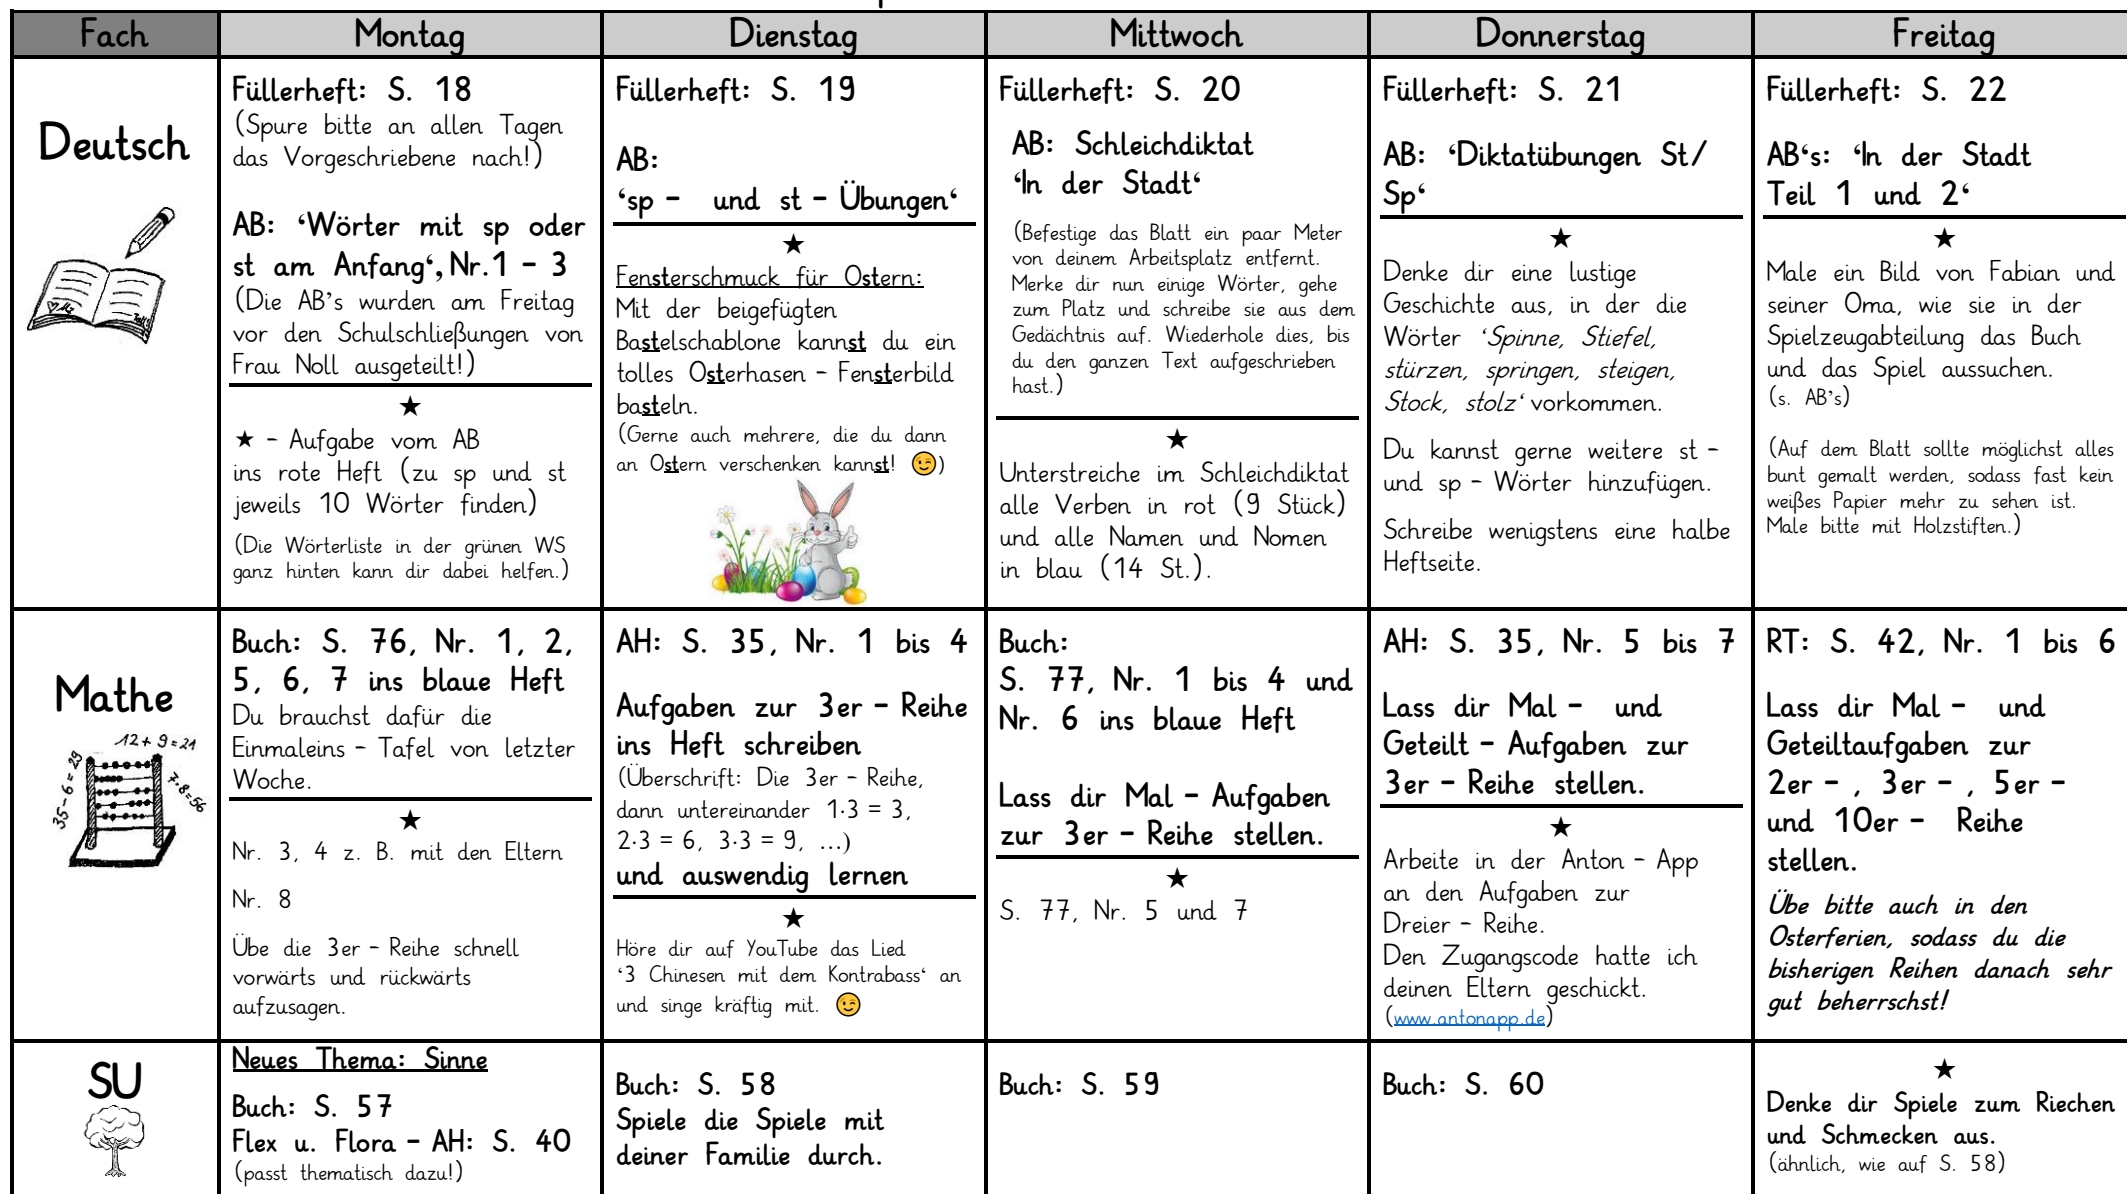 Fach
Montag
Dienstag
Mittwoch
Donnerstag
Freitag
Deutsch
Füllerheft: S. 18
(Spure bitte an allen Tagen
das Vorgeschriebene nach!)
AB: ‘Wörter mit sp oder
st am Anfang‘, Nr.1 – 3
(Die AB’s wurden am Freitag
vor den Schulschließungen von
Frau Noll ausgeteilt!)
★
★ – Aufgabe vom AB
ins rote Heft (zu sp und st
jeweils 10 Wörter finden)
(Die Wörterliste in der grünen WS
ganz hinten kann dir dabei helfen.)
Füllerheft: S. 19
AB:
‘sp – und st – Übungen‘
★
Fensterschmuck für Ostern:
Mit der beigefügten
Bastelschablone kannst du ein
tolles Osterhasen – Fensterbild
basteln.
(Gerne auch mehrere, die du dann
an Ostern verschenken kannst! 😉)
Füllerheft: S. 20
AB: Schleichdiktat
‘In der Stadt‘
(Befestige das Blatt ein paar Meter
von deinem Arbeitsplatz entfernt.
Merke dir nun einige Wörter, gehe
zum Platz und schreibe sie aus dem
Gedächtnis auf. Wiederhole dies, bis
du den ganzen Text aufgeschrieben
hast.)
★
Unterstreiche im Schleichdiktat
alle Verben in rot (9 Stück)
und alle Namen und Nomen
in blau (14 St.).
Füllerheft: S. 21
AB: ‘Diktatübungen St/
Sp‘
★
Denke dir eine lustige
Geschichte aus, in der die
Wörter ‘Spinne, Stiefel,
stürzen, springen, steigen,
Stock, stolz‘ vorkommen.
Du kannst gerne weitere st –
und sp – Wörter hinzufügen.
Schreibe wenigstens eine halbe
Heftseite.
Füllerheft: S. 22
AB‘s: ‘In der Stadt
Teil 1 und 2‘
★
Male ein Bild von Fabian und
seiner Oma, wie sie in der
Spielzeugabteilung das Buch
und das Spiel aussuchen.
(s. AB’s)
(Auf dem Blatt sollte möglichst alles
bunt gemalt werden, sodass fast kein
weißes Papier mehr zu sehen ist.
Male bitte mit Holzstiften.)
Mathe
12+ 9=21
35-6=29
7·8=56
Buch: S. 76, Nr. 1, 2,
5, 6, 7 ins blaue Heft
Du brauchst dafür die
Einmaleins – Tafel von letzter
Woche.
★
Nr. 3, 4 z. B. mit den Eltern
Nr. 8
Übe die 3er – Reihe schnell
vorwärts und rückwärts
aufzusagen.
AH: S. 35, Nr. 1 bis 4
Aufgaben zur 3er – Reihe
ins Heft schreiben
(Überschrift: Die 3er – Reihe,
dann untereinander 1·3 = 3,
2·3 = 6, 3·3 = 9, …)
und auswendig lernen
★
Höre dir auf YouTube das Lied
‘3 Chinesen mit dem Kontrabass‘ an
und singe kräftig mit. 😉
Buch:
S. 77, Nr. 1 bis 4 und
Nr. 6 ins blaue Heft
Lass dir Mal – Aufgaben
zur 3er – Reihe stellen.
★
S. 77, Nr. 5 und 7
AH: S. 35, Nr. 5 bis 7
Lass dir Mal – und
Geteilt – Aufgaben zur
3er – Reihe stellen.
★
Arbeite in der Anton – App
an den Aufgaben zur
Dreier – Reihe.
Den Zugangscode hatte ich
deinen Eltern geschickt.
(www.antonapp.de)
RT: S. 42, Nr. 1 bis 6
Lass dir Mal – und
Geteiltaufgaben zur
2er – , 3er – , 5er –
und 10er – Reihe
stellen.
Übe bitte auch in den
Osterferien, sodass du die
bisherigen Reihen danach sehr
gut beherrschst!
SU
Neues Thema: Sinne
Buch: S. 57
Flex u. Flora – AH: S. 40
(passt thematisch dazu!)
Buch: S. 58
Spiele die Spiele mit
deiner Familie durch.
Buch: S. 59
Buch: S. 60
★
Denke dir Spiele zum Riechen
und Schmecken aus.
(ähnlich, wie auf S. 58)